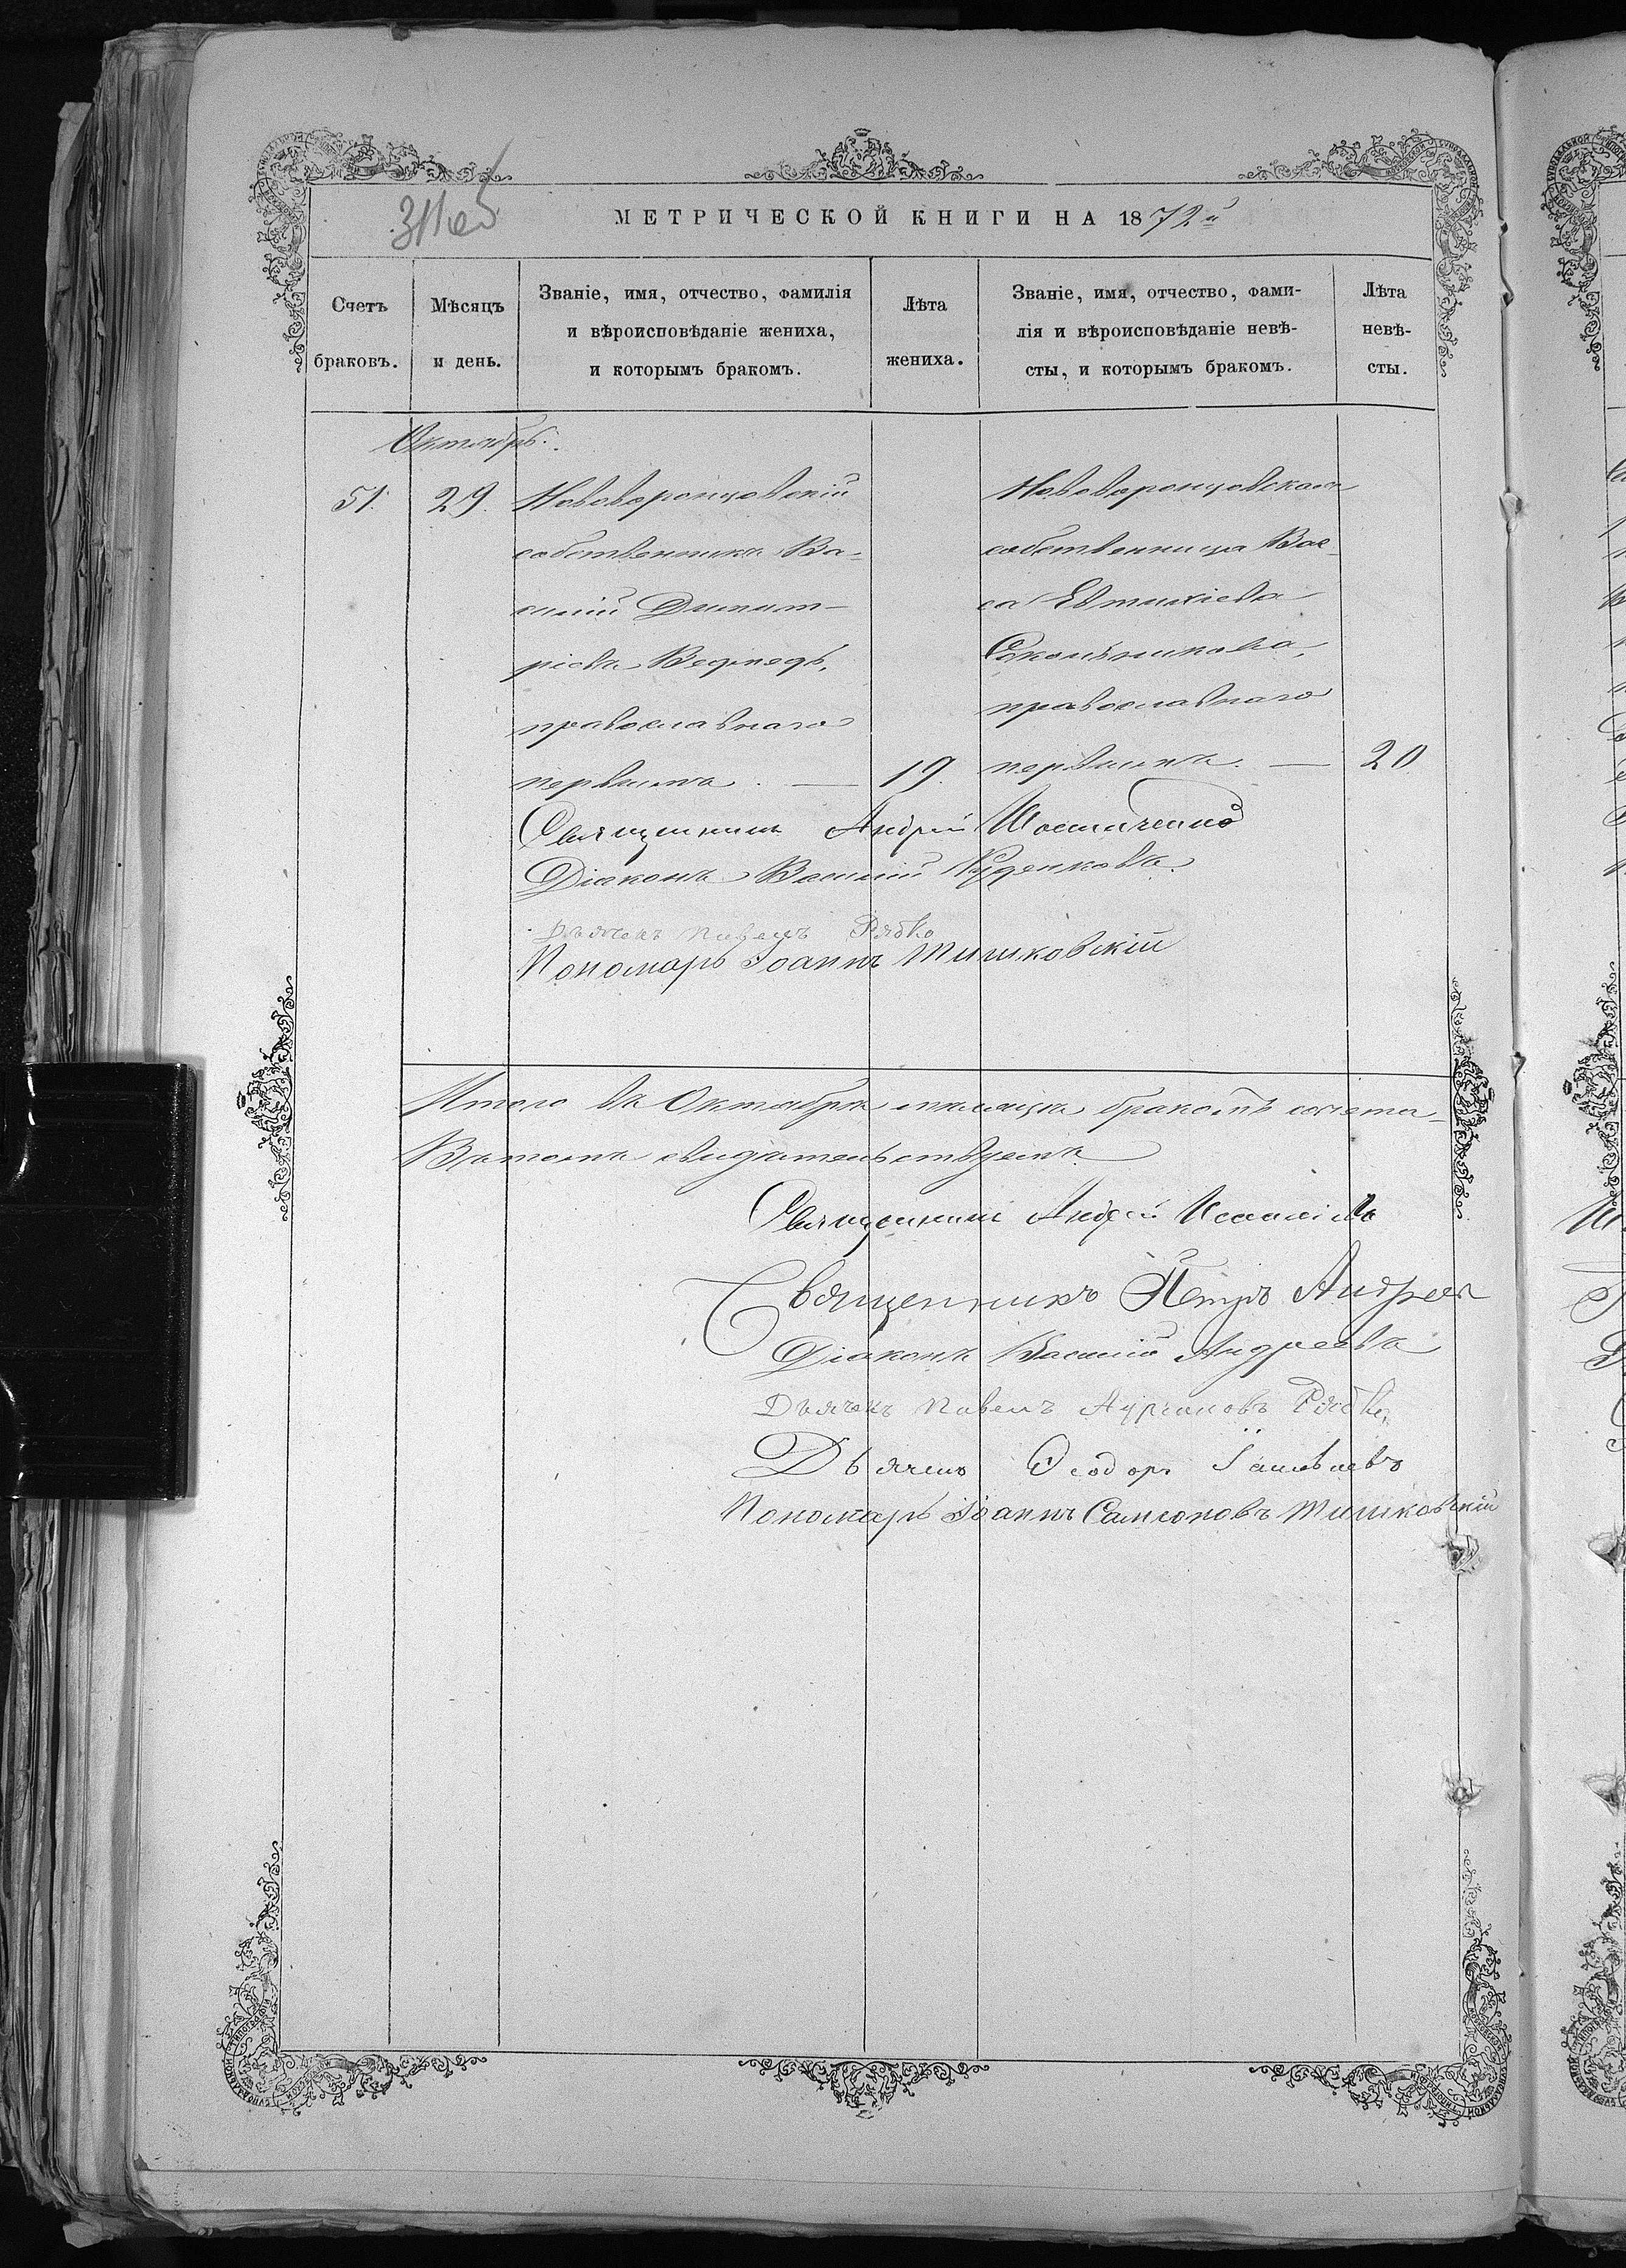 МЕТРИЧЕСКОЙ КНИГИ НА 1872й
Счетъ браковъ.
Мѣсяцъ и день.
Званіе, имя, отчество, фамилія
и вѣроисповѣданіе жениха,
и которымъ бракомъ.
Лѣта жениха.
Званіе, имя, отчество, фами-
лія и вѣроисповѣданіе невѣ-
сты, и которымъ бракомъ.
Лѣта невѣ-
сты.
Октябрь.
51. 29.
Нововоронцовскій
собственникъ Ва-
силій Димит-
ріевъ Ведмедь,
православнаго
первымъ. — 19.
Нововоронцовская
собственница Вас-
са Евтихіева
Сокольникова,
православнаго
первымъ. — 20
Священникъ Андрей
Діаконъ Василій
Дьячекъ Павелъ Рябко
Пономарь Іоаннъ Мишковскій
Итого въ Октябрѣ мѣсяцѣ бракомъ сочета-
Въ томъ свидѣтельствуемъ
Священникъ Андрей
Священникъ Петръ Андреев
Діаконъ Василій Андреевъ
Дьячекъ Павелъ Рябко
Дьячекъ Ѳеодоръ
Пономарь Іоаннъ Самсоновъ Мишковскій